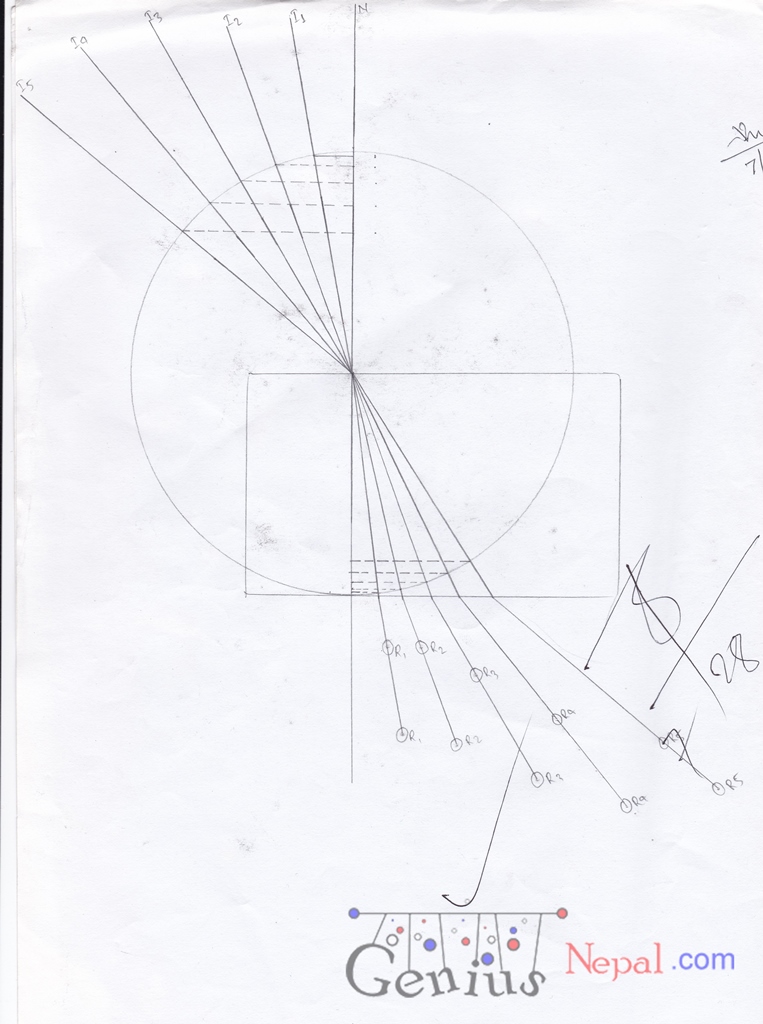 I5 I4 I3 I2 I1 N
R1 R2
R3
R4
R1 R2
R3
R4
R5
28
Genius Nepal.com